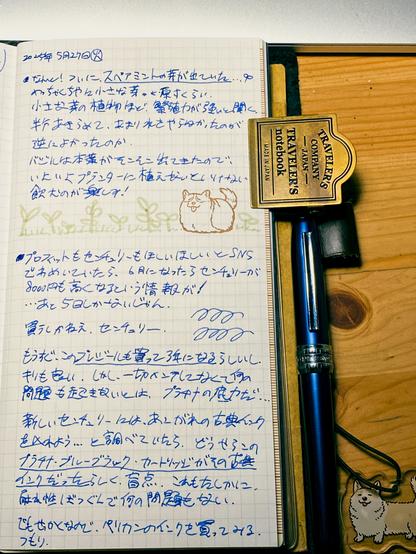 2025年 5月27日㊋
・なんと! ついに、スペアミントの芽が出ていた…。
めっちゃくちゃに小さな芽。
小さな芽の植物ほど、繁殖力が強いと聞く。
半分あきらめて、あまり水をやらなかったのが
逆によかったのか。
バジルは本葉がそこそこ出てきたので、
いよいよプランターに植えないといけない
・プロフィットもセンチュリーもほしいほしいとSNS
でわめいていたら、6月になったらセンチュリーが
8000円も高くなるという情報が!
…あと5日しかないじゃん。
買うしかねえ、センチュリー。
もうれで、このブルゴールも買って3年になるらしいし、
キリもよい。しかし、一切メンテしてなくて何の
問題もおきないとは、プラチナの底力だ…
新しいセンチュリーには、あこがれの古典インク
を入れよう…と調べていたら、どうやらこの
プラチナ・ブルーブラック・カートリッジがその古典
インクだったらしく、盲点。これもたしかに
耐水性ばつぐんで何の問題もない。
でもせっかくなので、ペリカンのインクを買ってみる
つもり。
TRAVELER'S
COMPANY
JAPAN
TRAVELER'S
notebook
MADE IN JAPAN